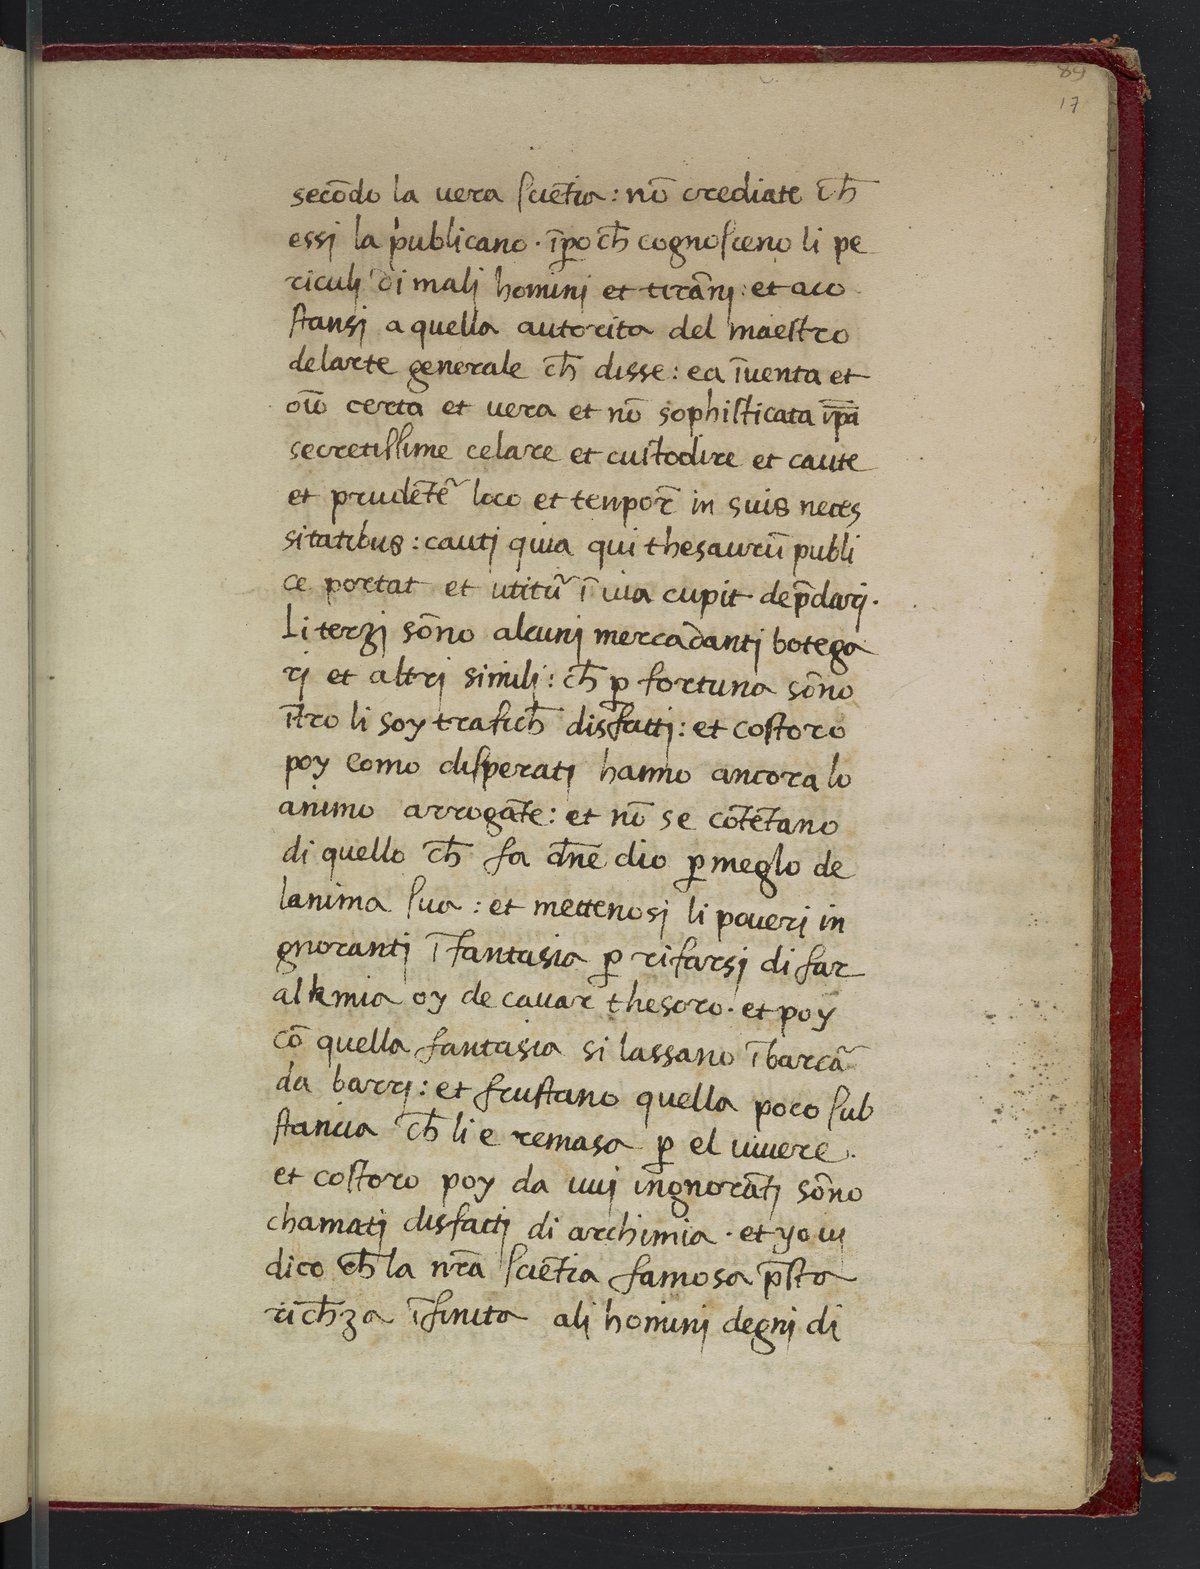 89
17
secōdo la uera sciētia: nō crediate ch̄
essi la publicano. īꝑo ch̄ cognosceno li pe
riculi di mali homini et tirāni: et aco
stansi a quella autorita del maestro
delarte generale ch̄ disse: ea īuenta et
certa et uera et nō sophisticata ip̄ā
secretissime celare et custodire et caute
et prudētē loco et tenpor̄ in suis neces
sitatibus: cauti quia qui thesaurū publi
ce portat et utitū ī uia cupit dep̄dari.
Li terzi sōno alcuni mercadanti botega
ri et altri simili: ch̄ ꝑ fortuna sōno
īt̄ro li soy trafich̄ disfatti: et costoro
poy como disperati hanno ancora lo
animo arrogāte: et nō se cōtētano
di quello ch̄ fa dn̄e dio ꝑ meglo de
lanima sua: et mettenosi li poueri in
gnoranti ī fantasia ꝑ rifarsi di far
alkmia oy de cauar thesoro. et poy
cō quella fantasia si lassano ībarcā
da barri: et frustano quella poco sub
stancia ch̄ li e remasa ꝑ el uiuere.
et costoro poy da uui ingnorāti sōno
chamati disfatti di archimia. et yo ui
dico ch̄ la nr̄a sciētia famosa p̄sta
rich̄za īfinita ali homini degni di